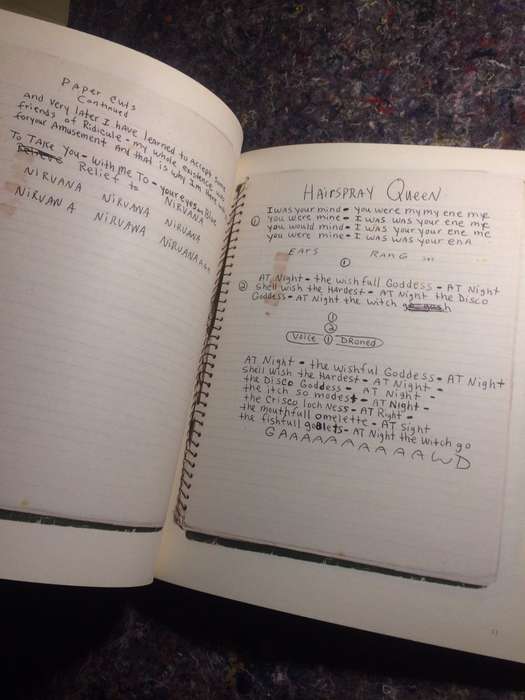 PAPER Cuts
Continued
and very later I have learned to accept some
friends of Ridicule - my whole existence
for your Amusement And that is why Im
To TAKE YOU - with me To - your eyes - Blue
Relief to NIRVANA
NIRVANA NIRVANA NIRVANA
NIRVANA NIRVANA NIRVANA
HAIRSPRAY QUEEN
① I was your mind - you were my my ene me
you were mine - I was was your ene me
you would mind - I was your your ene me
you were mine - I was was your enA
EARS RANG
①
AT Night - the wishfull Goddess - AT Night
② Shell wish the Hardest - AT Night the Disco
Goddess - AT Night the witch go
①
②
VOICE ① DRONED
AT Night - the wishful Goddess - AT Night
shell wish the Hardest - AT Night -
the Disco Goddess - AT Night -
the itch so modest - AT Night -
the Crisco loch Ness - AT Right -
the mouthfull omelette - AT Sight
the fishfull goblets - AT Night the Witch go
GAAAAAAAAAAWD